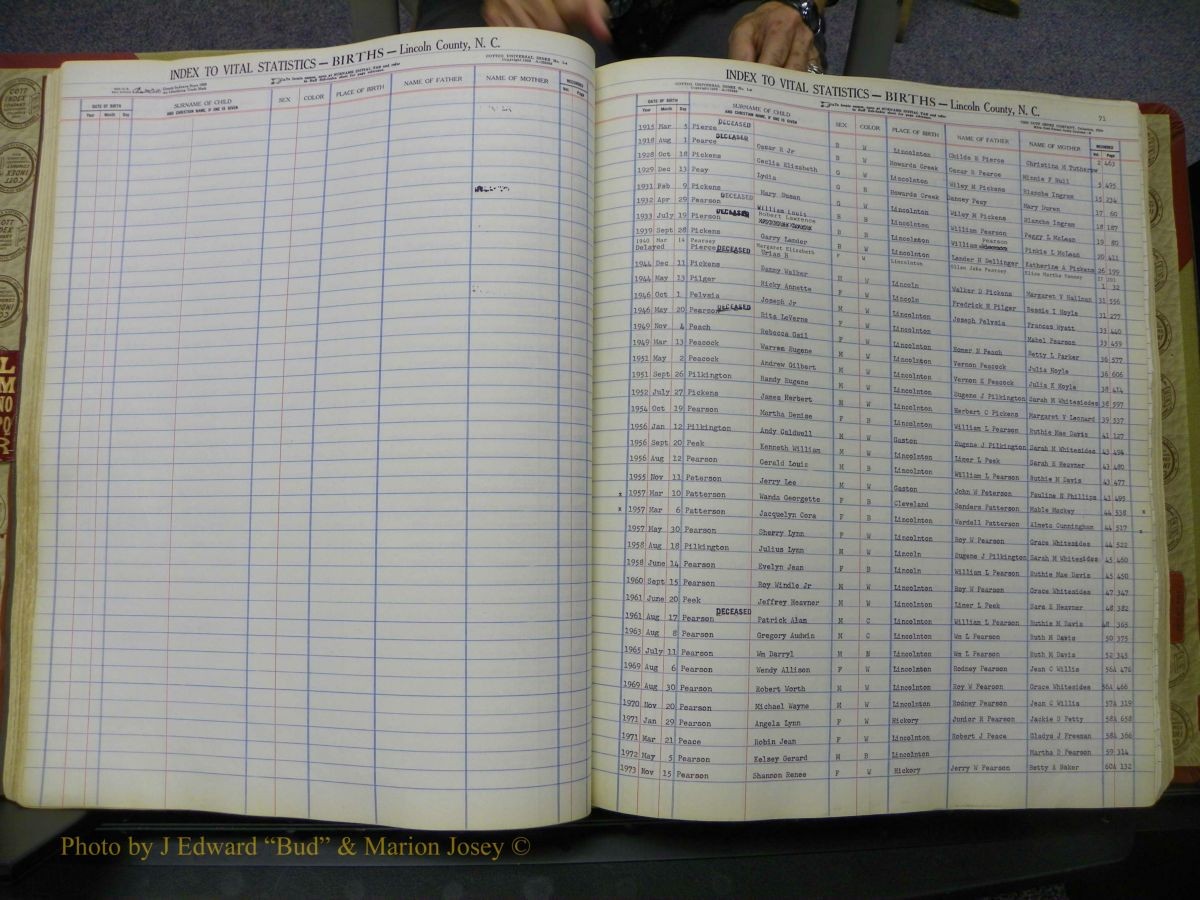 INDEX TO VITAL STATISTICS — BIRTHS — Lincoln County, N. C.
DATE OF BIRTH SURNAME OF CHILD SEX COLOR PLACE OF BIRTH NAME OF FATHER NAME OF MOTHER RECORDED
Year Month Day AND CHRISTIAN NAME, IF ONE IS GIVEN Vol. Page
INDEX TO VITAL STATISTICS — BIRTHS — Lincoln County, N. C. 71
DATE OF BIRTH SURNAME OF CHILD SEX COLOR PLACE OF BIRTH NAME OF FATHER NAME OF MOTHER RECORDED
Year Month Day AND CHRISTIAN NAME, IF ONE IS GIVEN Vol. Page
1915 Mar 5 Pierce DECEASED B W Lincolnton Childs H Pierce Christina M Tutherow 2 463
1918 Aug 1 Pearce DECEASED Oscar R Jr B W Howards Creek Oscar R Pearce Minnie F Hull 5 495
1928 Oct 18 Pickens Ceclia Elizabeth G W Lincolnton Wiley M Pickens Blanche Ingram 15 234
1929 Dec 13 Peay Lydia G B Howards Creek Dancey Peay Mary Duren 17 60
1931 Feb 9 Pickens Mary Susan G W Lincolnton Wiley M Pickens Blanche Ingram 18 187
1932 Apr 29 Pearson DECEASED William Louis B B Lincolnton William Pearson Peggy L McLean 19 80
1933 July 19 Pierson DECEASED Robert Lawrence B B Lincolnton William Pearson Pinkie L McLean 20 411
1939 Sept 28 Pickens Garry Lander B W Lincolnton Lander H Dellinger Katherine A Pickens 26 199
1940 Mar 14 Pearsey Margaret Elizabeth F W Lincolnton Ellen Jake Pearsey
Delayed Pierce DECEASED Urias R 1 32
1944 Dec 11 Pickens Danny Walker M W Lincoln Walker D Pickens Margaret V Hallman 31 556
1944 May 13 Pilger Ricky Annette F W Lincoln Fredrick H Pilger Bessie I Hoyle 31 277
1946 Oct 1 Pelvsia Joseph Jr M W Lincolnton Joseph Pelvsia Frances Wyatt 33 440
1946 May 20 Pearson DECEASED Rita LaVerne F W Lincolnton Mabel Pearson 33 459
1949 Nov 4 Peach Rebecca Gail F W Lincolnton Homer N Peach Betty L Parker 36 577
1949 Mar 13 Peacock Warren Eugene M W Lincolnton Vernon Peacock Julia Hoyle 36 606
1951 May 2 Peacock Andrew Gilbert M W Lincolnton Vernon S Peacock Julia K Hoyle 38 414
1951 Sept 26 Pilkington Randy Eugene M W Lincolnton Eugene J Pilkington Sarah M Whitesides 38 597
1952 July 27 Pickens James Herbert M W Lincolnton Herbert C Pickens Margaret V Leonard 39 537
1954 Oct 19 Pearson Martha Denise F B Lincolnton William L Pearson Ruthie Mae Davis 41 127
1956 Jan 12 Pilkington Andy Caldwell M W Gaston Eugene J Pilkington Sarah M Whitesides 43 494
1956 Sept 20 Peek Kenneth William M W Lincolnton Liner L Peek Sarah E Heavner 43 480
1956 Aug 12 Pearson Gerald Louis M B Lincolnton William L Pearson Ruthie M Davis 43 477
1955 Nov 11 Peterson Jerry Lee M W Gaston John W Peterson Pauline N Phillips 43 495
x 1957 Mar 10 Patterson Wanda Georgette F B Cleveland Sanders Patterson Mable Mackey 44 538 x
x 1957 Mar 6 Patterson Jacquelyn Cora F B Lincolnton Wardell Patterson Almeta Cunningham 44 517 x
1957 May 30 Pearson Sherry Lynn F W Lincolnton Roy W Pearson Grace Whitesides 44 522
1958 Aug 18 Pilkington Julius Lynn M W Lincoln Eugene J Pilkington Sarah M Whitesides 45 460
1958 June 14 Pearson Evelyn Jean F B Lincoln William L Pearson Ruthie Mae Davis 45 450
1960 Sept 15 Pearson Roy Windle Jr M W Lincolnton Roy W Pearson Grace Whitesides 47 347
1961 June 20 Peek Jeffrey Heavner M W Lincolnton Liner L Peek Sara E Heavner 48 382
1961 Aug 17 Pearson DECEASED Patrick Alam M C Lincolnton William L Pearson Ruthie M Davis 48 365
1963 Aug 8 Pearson Gregory Audwin M C Lincolnton Wm L Pearson Ruth M Davis 50 375
1965 July 11 Pearson Wm Darryl M N Lincolnton Wm L Pearson Ruth M Davis 52 345
1969 Aug 6 Pearson Wendy Allison F W Lincolnton Rodney Pearson Jean C Willis 56A 476
1969 Aug 30 Pearson Robert Worth M W Lincolnton Roy W Pearson Grace Whitesides 56A 466
1970 Nov 20 Pearson Michael Wayne M W Lincolnton Rodney Pearson Jean C Willis 57A 319
1971 Jan 29 Pearson Angela Lynn F W Hickory Junior H Pearson Jackie D Petty 58A 658
1971 Mar 21 Peace Robin Jean F W Lincolnton Robert J Peace Gladys J Freeman 58A 366
1972 May 5 Pearson Kelsey Gerard M B Lincolnton Martha D Pearson 59 314
1973 Nov 15 Pearson Shannon Renee F W Hickory Jerry W Pearson Betty A Baker 60A 132
Photo by J Edward “Bud” & Marion Josey ©